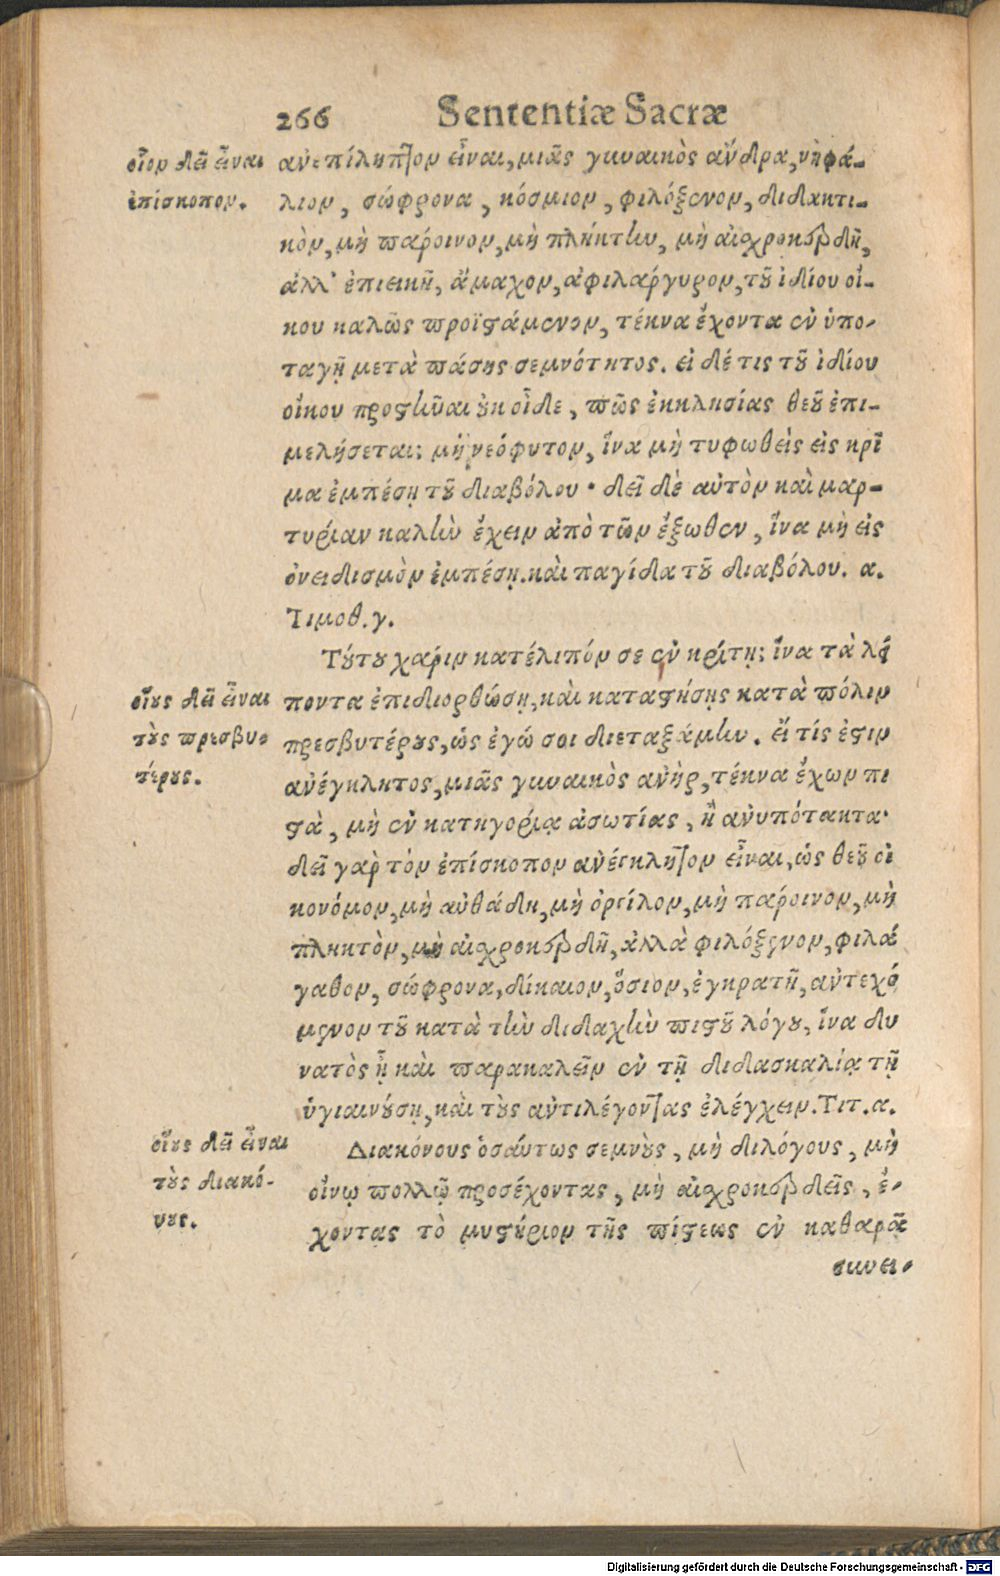 266 Sententiæ Sacræ
οἷον δεῖ εἶναι
ἐπίσκοπον.
ἀνεπίληπτον εἶναι, μιᾶς γυναικὸς ἄνδρα, νηφά-
λιον, σώφρονα, κόσμιον, φιλόξενον, διδακτι-
κὸν, μὴ πάροινον, μὴ πλήκτην, μὴ αἰσχροκερδῆ,
ἀλλ' ἐπιεικῆ, ἄμαχον, ἀφιλάργυρον, τοῦ ἰδίου οἴ-
κου καλῶς προϊστάμενον, τέκνα ἔχοντα ἐν ὑπο-
ταγῇ μετὰ πάσης σεμνότητος. εἰ δέ τις τοῦ ἰδίου
οἴκου προστῆναι οὐκ οἶδε, πῶς ἐκκλησίας θεοῦ ἐπι-
μελήσεται; μὴ νεόφυτον, ἵνα μὴ τυφωθεὶς εἰς κρῖ
μα ἐμπέσῃ τοῦ διαβόλου· δεῖ δὲ αὐτὸν καὶ μαρ-
τυρίαν καλὴν ἔχειν ἀπὸ τῶν ἔξωθεν, ἵνα μὴ εἰς
ὀνειδισμὸν ἐμπέσῃ. καὶ παγίδα τοῦ διαβόλου. α.
Τιμοθ. γ.
Τούτου χάριν κατέλιπόν σε ἐν κρήτῃ; ἵνα τὰ λεί
οἵους δεῖ εἶναι
τοὺς πρεσβυ-
τέρους.
ποντα ἐπιδιορθώσῃ, καὶ καταστήσῃς κατὰ πόλιν
πρεσβυτέρους, ὡς ἐγώ σοι διεταξάμην. εἴ τίς ἐστιν
ἀνέγκλητος, μιᾶς γυναικὸς ἀνὴρ, τέκνα ἔχων πι
στὰ, μὴ ἐν κατηγορίᾳ ἀσωτίας, ἢ ἀνυπότακτα·
δεῖ γὰρ τὸν ἐπίσκοπον ἀνέγκλητον εἶναι, ὡς θεοῦ οἰ
κονόμον, μὴ αὐθάδη, μὴ ὀργίλον, μὴ πάροινον, μὴ
πληκτὸν, μὴ αἰσχροκερδῆ, ἀλλὰ φιλόξενον, φιλά
γαθον, σώφρονα, δίκαιον, ὅσιον, ἐγκρατῆ, ἀντεχό
μενον τοῦ κατὰ τὴν διδαχὴν πιστοῦ λόγου, ἵνα δυ
νατὸς ᾖ καὶ παρακαλεῖν ἐν τῇ διδασκαλίᾳ τῇ
ὑγιαινούσῃ, καὶ τοὺς ἀντιλέγοντας ἐλέγχειν. Τιτ. α.
οἵους δεῖ εἶναι
τοὺς διακό-
νους.
Διακόνους ὁσαύτως σεμνοὺς, μὴ διλόγους, μὴ
οἴνῳ πολλῷ προσέχοντας, μὴ αἰσχροκερδεῖς, ἔ-
χοντας τὸ μυστήριον τῆς πίστεως ἐν καθαρᾷ
συνει-
Digitalisierung gefördert durch die Deutsche Forschungsgemeinschaft - DFG